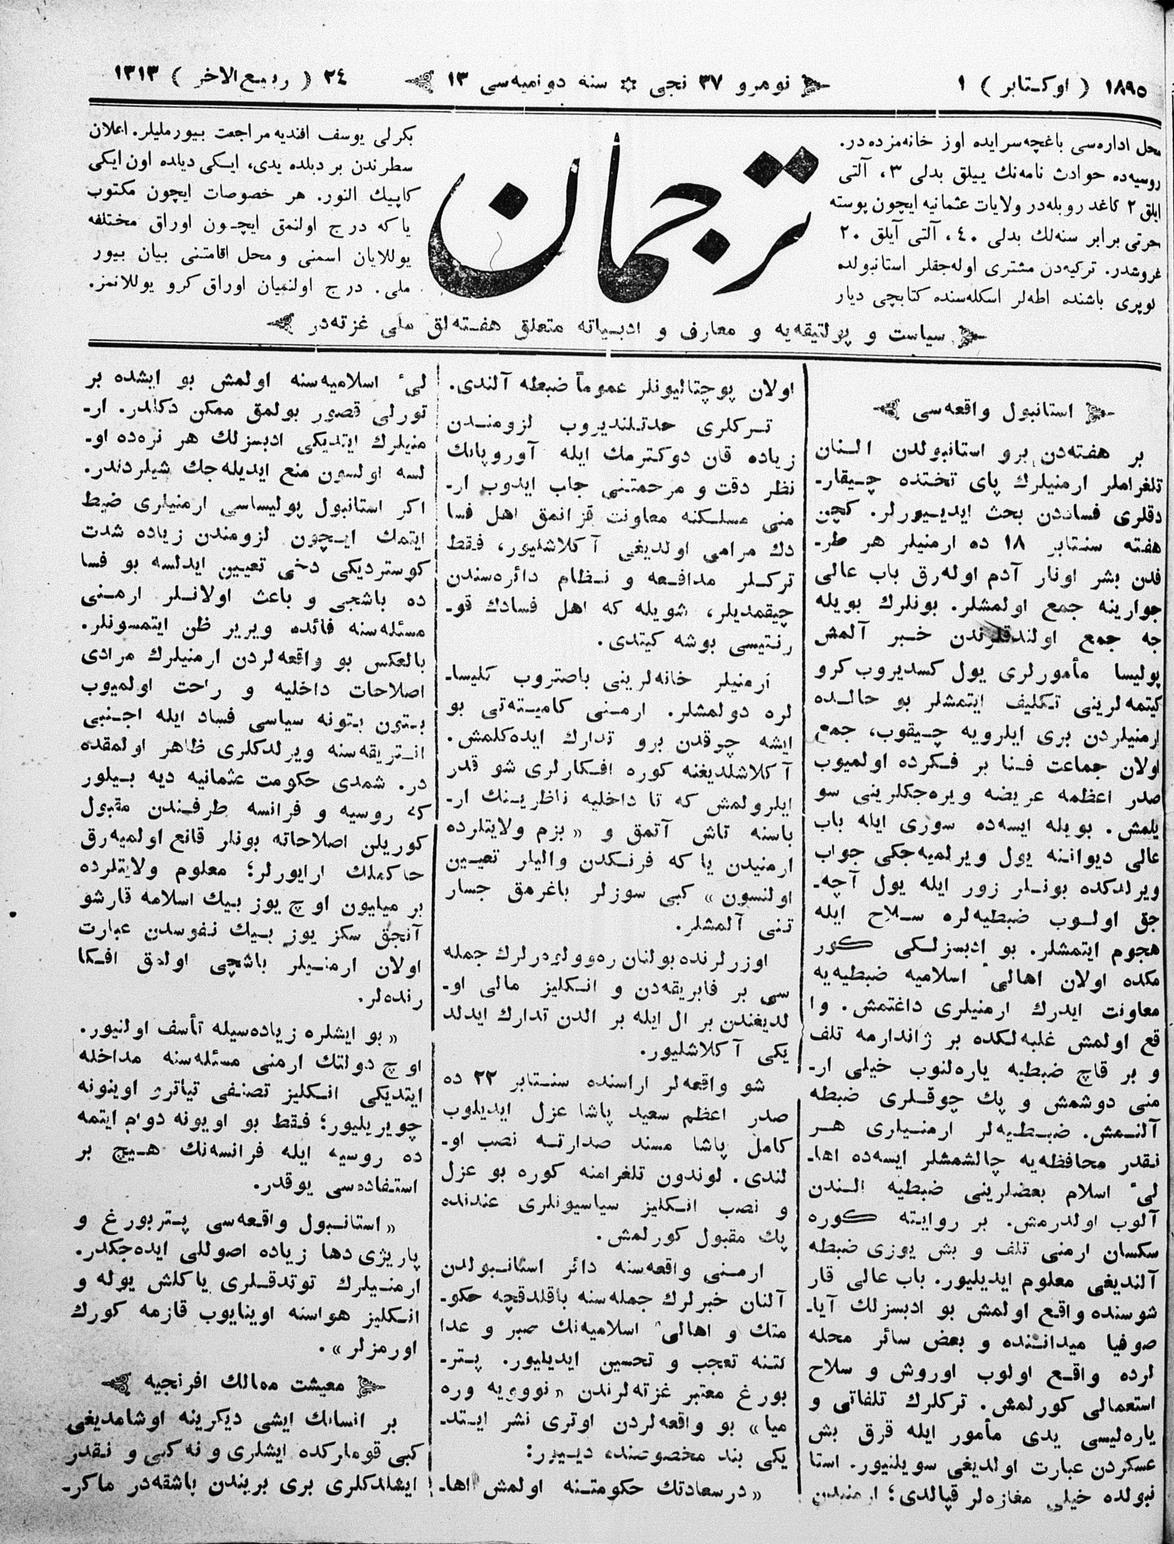 ١٨٩٥ ( اوكـتابر ) ١
نومرو ٣٧ نجى ۞ سنه دواميه‌سى ١٣
٢٤ ( ربيع الاخر ) ١٣١٣
محل اداره‌سى باغچه‌سرايده اوز خانه‌مزده در.
روسيه‌ده حوادث نامه‌نك ييللق بدلى ٣، آلتى
ايلق ٢ كاغد روبله‌در ولايات عثمانيه ايچون پوسته
اجرتى برابر سنه‌لك بدلى ٤٠، آلتى آيلق ٢٠
غروشدر. تركيه‌دن مشترى اوله‌جقلر استانبولده
كوپرى باشنده اطه‌لر اسكله‌سنده كتابچى ديار
ترجمان
بكرلى يوسف افنديه مراجعت بيورمليلر. اعلان
سطرندن بر ديلده يدى، ايـكى ديلده اون ايكى
كاپيك النور. هر خصوصات ايچون مكتوب
ياكه درج اولنمق ايچـون اوراق مختلفه
يوللايان اسمنى و محل اقامتنى بيان بيور
ملى. درج اولنميان اوراق كرو يوللانمز.
سياست و پولتيقه‌يه و معارف و ادبـياته متعلق هفـته‌لق ملى غزته‌در
استانبول واقعه‌سى
بر هفته‌دن برو استانبولدن الـنان
تلغراملر ارمنيلرك پاى تختده چـيقارـ
دقلرى فساددن بحث ايديـيورلر. كچن
هفته سنـتابر ١٨ ده ارمنيلر هر طرـ
فدن بشر اونار آدم اوله‌رق باب عالى
جوارينه جمع اولمشلر. بونلرك بويله
جه جمع اولندقلرندن خـبر آلمش
پوليسا مأمورلرى يول كسديروب كرو
كيتمه‌لرينى تـكليف ايتمشلر بو حالـده
ارمنيلردن برى ايلرويه چـيقوب، جمع
اولان جماعت فـنا بر فـكرده اولميوب
صدر اعظمه عريضه ويره‌جكلرينى سو
يلمش. بويله ايسه‌ده سورى ايله باب
عالى ديوانـنه يول ويرلميه‌جكى جواب
ويرلدكده بونـلر زور ايله يول آچه‌ـ
جق اولـوب ضبطيه‌لره سـلاح ايله
هجوم ايتمشلر. بو ادبسزلـكى كور
مكده اولان اهالىء اسلاميه ضبطيه‌يه
معاونت ايدرك ارمنيلرى داغتمش. وا
قع اولمش غلبه‌لكده بر ژاندارمه تلف
و بر قاچ ضبطيه ياره‌لنوب خيلى ارـ
منى دوشمش و پك چوقـلرى ضبطه
آلنـمش. ضبـطيه‌لر ارمنـيلرى هـر
نـقدر محافظه‌يه چالشمشلر ايسه‌ده اهاـ
لىء اسلام بعضلرينى ضبطيه الـندن
آلوب اولدرمش. بر روايـته كوره
سكسان ارمنى تلف و بش يوزى ضبطه
آلنديغى معلوم ايديليور. باب عالى قار
شوسنده واقع اولمش بو ادبسزلك آياـ
صوفيا ميدانـنده و بعض سائر محله
لرده واقـع اولوب اوروش و سلاح
استعمالى كورلمش. تركلرك تلفاتى و
ياره‌ليسى يدى مأمور ايله قرق بش
عسكردن عبارت اولديغى سويلنيور. استا
نبولده خيلى مغازه‌لر قپالدى؛ ارمنيدن
اولان پوچتاليونلر عموماً ضبطه آلندى.
تـركلرى حدتـلنديروب لزومنـدن
زياده قان دوكـترمك ايله آوروپانك
نظر دقت و مرحمتـنى جلب ايدوب ارـ
منى مسلـكنه معاونت قزانمق اهل فسا
دك مرامى اولديغى آكلاشليور، فـقط
تركـلر مدافـعه و نـظام دائره‌سندن
چيقمديلر، شويله كه اهل فسادك قوـ
رنـتيسى بوشه كيتدى.
ارمنيلر خانه‌لرينى باصتروب كليساـ
لره دولمشلر. ارمـنى كاميـته‌تى بو
ايشه چوقدن برو تدارك ايده‌كلمش.
آكلاشلديغنه كوره افـكارلرى شو قدر
ايلرولمش كه تا داخليه ناظريـنك ارـ
باسنه تاش آتمق و « بزم ولايتلرده
ارمنيدن ياكه فرنـكدن واليلر تعيـين
اولنسون » كبى سوزلر باغرمق جسار
تـنى آلمشلر.
اوزرلرنده بولنان ره‌وولوه‌رلرك جمله
سى بر فابريقه‌دن و انـكليز مالى اوـ
لديغندن بر ال ايله بر الدن تدارك ايدلد
يكى آكلاشليور.
شو واقعه‌لر اراسنده سنـتابر ٢٢ ده
صدر اعظم سعيد پاشا عزل ايديلوب
كامل پاشا مسند صدارتـه نصب اوـ
لندى. لوندون تلغرامنه كوره بو عزل
و نصب انـكليز سياسيونلرى عندنده
پك مقبول كورلمش.
ارمـنى واقعه‌سنه دائر استانـبولدن
آلنان خبرلرك جمله‌سنه باقلدقچه حكوـ
متك و اهالىء اسلاميه‌نك صبر و عدا
لتـنه تعجب و تحسين ايديليور. پـترـ
بورغ معتبر غزته‌لرندن « نوويه وره
ميا » بو واقعه‌لردن اوترى نشر ايـتدـ
يكى بند مخصوصنده ديـيور:
« درسعادتك حكومتـنه اولمش اهاـ
لىء اسلاميه‌سنه اولمش بو ايشده بر
تورلى قصور بولمق ممكن دكلدر. ارـ
منيلرك ايتديكى ادبسزلك هر نره‌ده اوـ
لسه اولسون منع ايديله‌جك شيلردندر.
اكر استانبول پوليساسى ارمنيلرى ضبط
ايتمك ايـچون لزومندن زياده شدت
كوستردیكى دخى تعيـين ايدلسه بو فسا
ده باشچى و باعث اولانـلر ارمـنى
مسئله‌سنه فائده ويرير ظن ايتمسونلر.
بالعكس بو واقعه‌لردن ارمنيلرك مرادى
اصلاحات داخليه و راحت اولميوب
بـتون بـتونه سياسى فساد ايله اجـنبى
انـتريقه‌سنه ويرلدكلرى ظاهر اولمقده
در. شمدى حكومت عثمانيه ديه بـيلور
كه روسيه و فرانسه طرفـندن مقبول
كوريلن اصلاحاته بونلر قانع اولميه‌رق
حاكملك ارايورلر؛ معلوم ولايتلرده
بر ميليون اوچ يوز بـيك اسلامه قارشو
آنجق سكز يوز بـيك نفوسدن عبارت
اولان ارمنـيلر باشچى اولمق افـكا
رنده‌لر.
« بو ايشلره زياده‌سيله تأسف اولنيور.
اوچ دولتك ارمنى مسئله‌سنه مداخله
ايتديكى انـكليز تصنفى تياترو اوينونه
چويريليور؛ فقط بو اويونه دوام ايتمه
ده روسيه ايله فرانسه‌نك هـيچ بر
استفاده‌سى يوقدر.
« استانـبول واقعه‌سى پـتربورغ و
پاريژى دها زياده اصوللى ايده‌جكدر.
ارمنـيلرك توتدقـلرى ياكلش يوله و
انـكليز هواسنه اوينايوب قازمه كورك
اورمزلر ».
معيشت ممالك افرنجيه
بر انسانك ايشى ديكرينه اوشامديغى
كبى قوملركده ايشلرى و نه كبى و نـقدر
ايشلدكلرى برى برـندن باشقه‌در ماكرـ